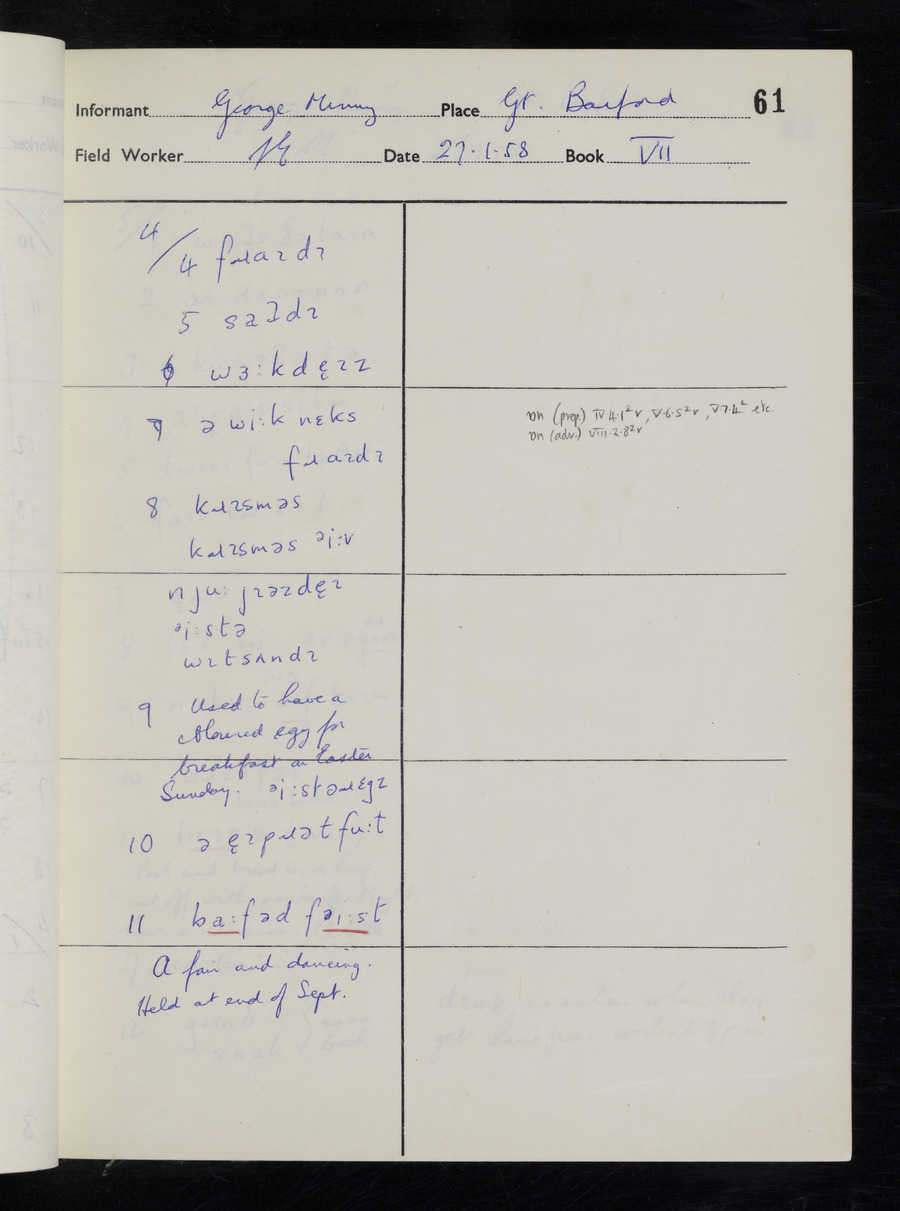 61
Informant George Minney Place Gt. Barford
Field Worker Date 27.1.58 Book VII
4/4 fɹaɪdɪ
5 saʔdɪ
6 wɜːkdę̈ɪz
7 ə wiːk nɛks
fɹaɪdɪ
8 kɹɪsməs
kɹɪsməs ᵊiːv
njuː jɪəzdęɪ
ᵊiːstə
wɪtsʌndɪ
9 Used to have a
coloured egg for
breakfast on Easter
Sunday. ᵊiːstəɹɛgz
10 ə ęɪpɹət fuːt
11 baːfəd fᵊiːst
A fair and dancing.
Held at end of Sept.
ɒn (prep.) IV 4.1²v, V.6.5²v, V7.4² etc.
ɒn (adv.) VIII.2.8²v